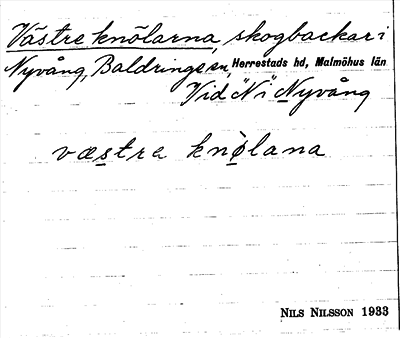 Västre knölarna, skogbackar i
Nyvång, Baldringe sn, Herrestads hd, Malmöhus län
Vid "N" i Nyvång
væstre knølana
NILS NILSSON 1933